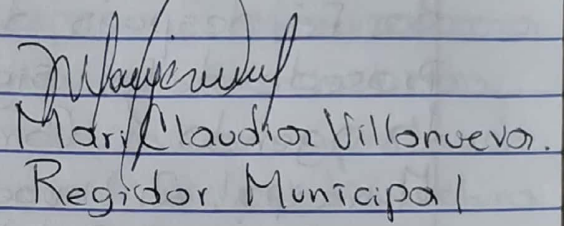 Mari Claudia Villanueva.
Regidor Municipal